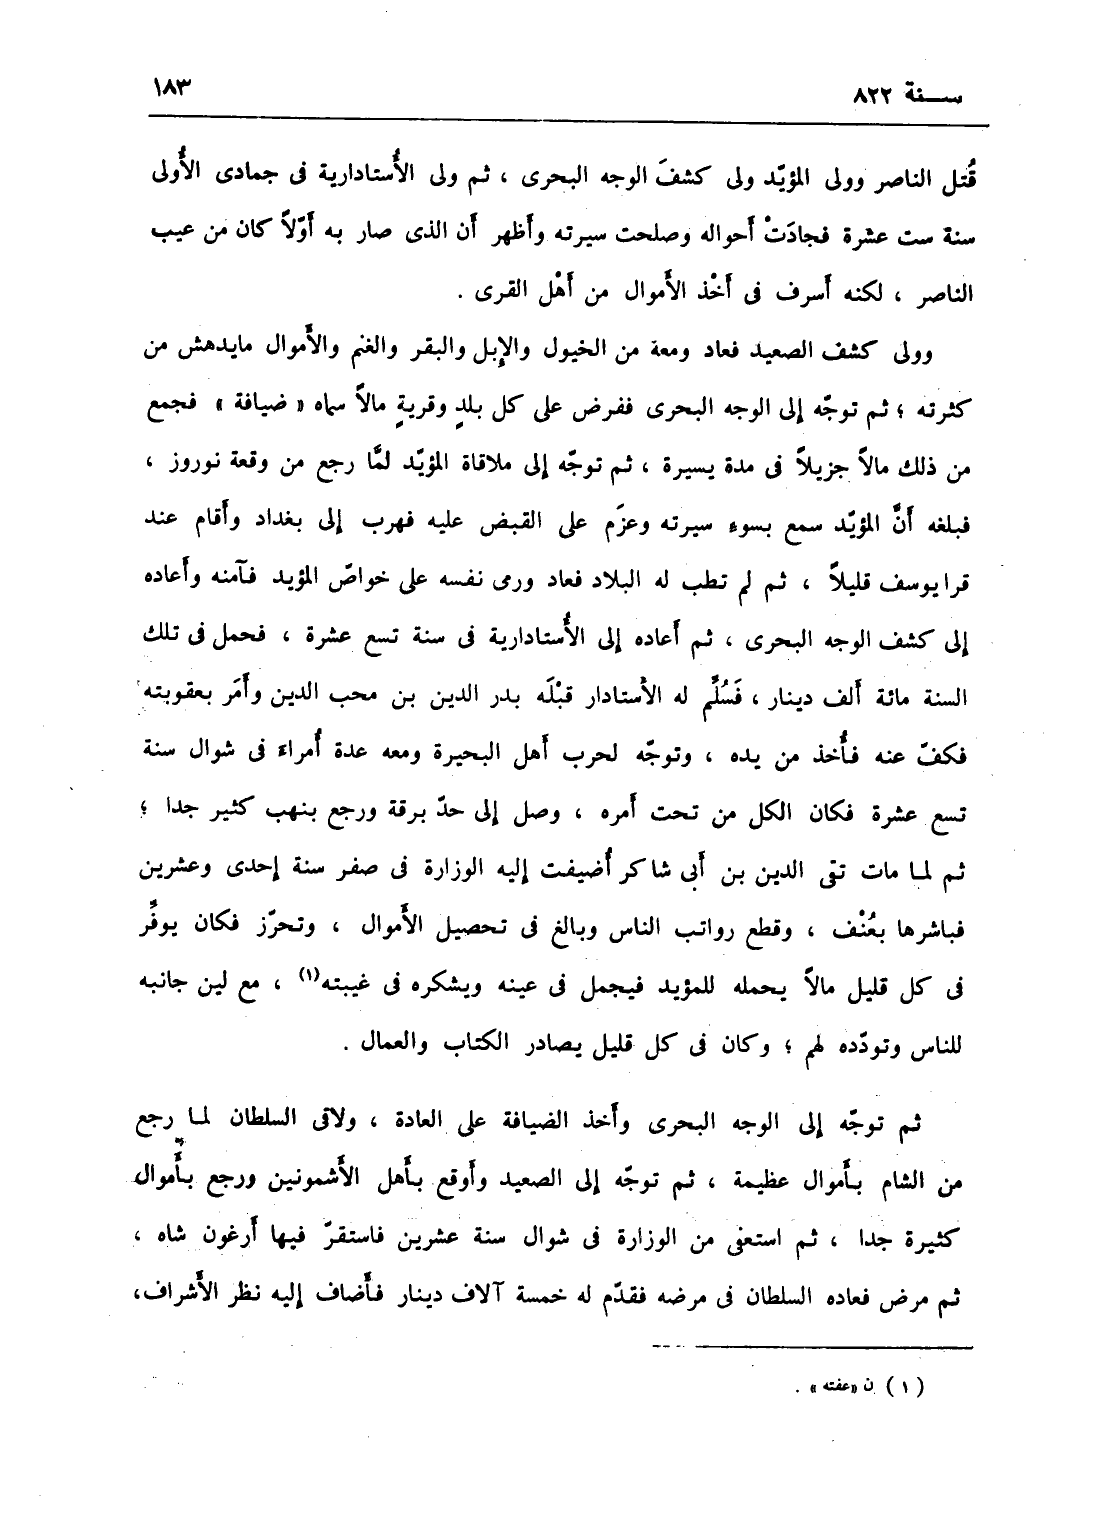 سنة ٨٢٢ ١٨٣
قُتل الناصر وولى المؤيّد ولى كشفَ الوجه البحرى ، ثم ولى الأُستادارية فى جمادى الأُولى
سنة ست عشرة فجادَتْ أحواله وصلحت سيرته وأظهر أن الذى صار به أوّلاً كان من عيب
الناصر ، لكنه أسرف فى أخْذ الأموال من أهْل القرى .
وولى كشف الصعيد فعاد ومعة من الخيول والإبل والبقر والغنم والأموال مايدهش من
كثرته ؛ ثم توجّه إلى الوجه البحرى ففرض على كل بلدٍ وقريةٍ مالاً سماه « ضيافة » فجمع
من ذلك مالاً جزيلاً فى مدة يسيرة ، ثم توجّه إلى ملاقاة المؤيّد لمَّا رجع من وقعة نوروز ،
فبلغه أنَّ المؤيّد سمع بسوء سيرته وعزَم على القبض عليه فهرب إلى بغداد وأقام عند
قرا يوسف قليلاً ، ثم لم تطب له البلاد فعاد ورمى نفسه على خواصّ المؤيد فآمنه وأعاده
إلى كشف الوجه البحرى ، ثم أعاده إلى الأُستادارية فى سنة تسع عشرة ، فحمل فى تلك
السنة مائة ألف دينار ، فَسُلِّم له الأستادار قبْلَه بدر الدين بن محب الدين وأمَر بعقوبته
فكفّ عنه فأُخذ من يده ، وتوجّه لحرب أهل البحيرة ومعه عدة أُمراء فى شوال سنة
تسع عشرة فكان الكل من تحت أمره ، وصل إلى حدّ برقة ورجع بنهب كثير جدا ؛
ثم لما مات تقى الدين بن أبى شاكر أُضيفت إليه الوزارة فى صفر سنة إحدى وعشرين
فباشرها بعُنْف ، وقطع رواتب الناس وبالغ فى تحصيل الأموال ، وتحرّز فكان يوفِّر
فى كل قليل مالاً يحمله للمؤيد فيجمل فى عينه ويشكره فى غيبته(١) ، مع لين جانبه
للناس وتودّده لهم ؛ وكان فى كل قليل يصادر الكتاب والعمال .
ثم توجّه إلى الوجه البحرى وأخذ الضيافة على العادة ، ولاقى السلطان لما رجع
من الشام بأموال عظيمة ، ثم توجّه إلى الصعيد وأوقع بأهل الأشمونين ورجع بأموال
كثيرة جدا ، ثم استعفى من الوزارة فى شوال سنة عشرين فاستقرّ فيها أرغون شاه ،
ثم مرض فعاده السلطان فى مرضه فقدّم له خمسة آلاف دينار فأضاف إليه نظر الأشراف،
( ١ ) ن «عفته » .